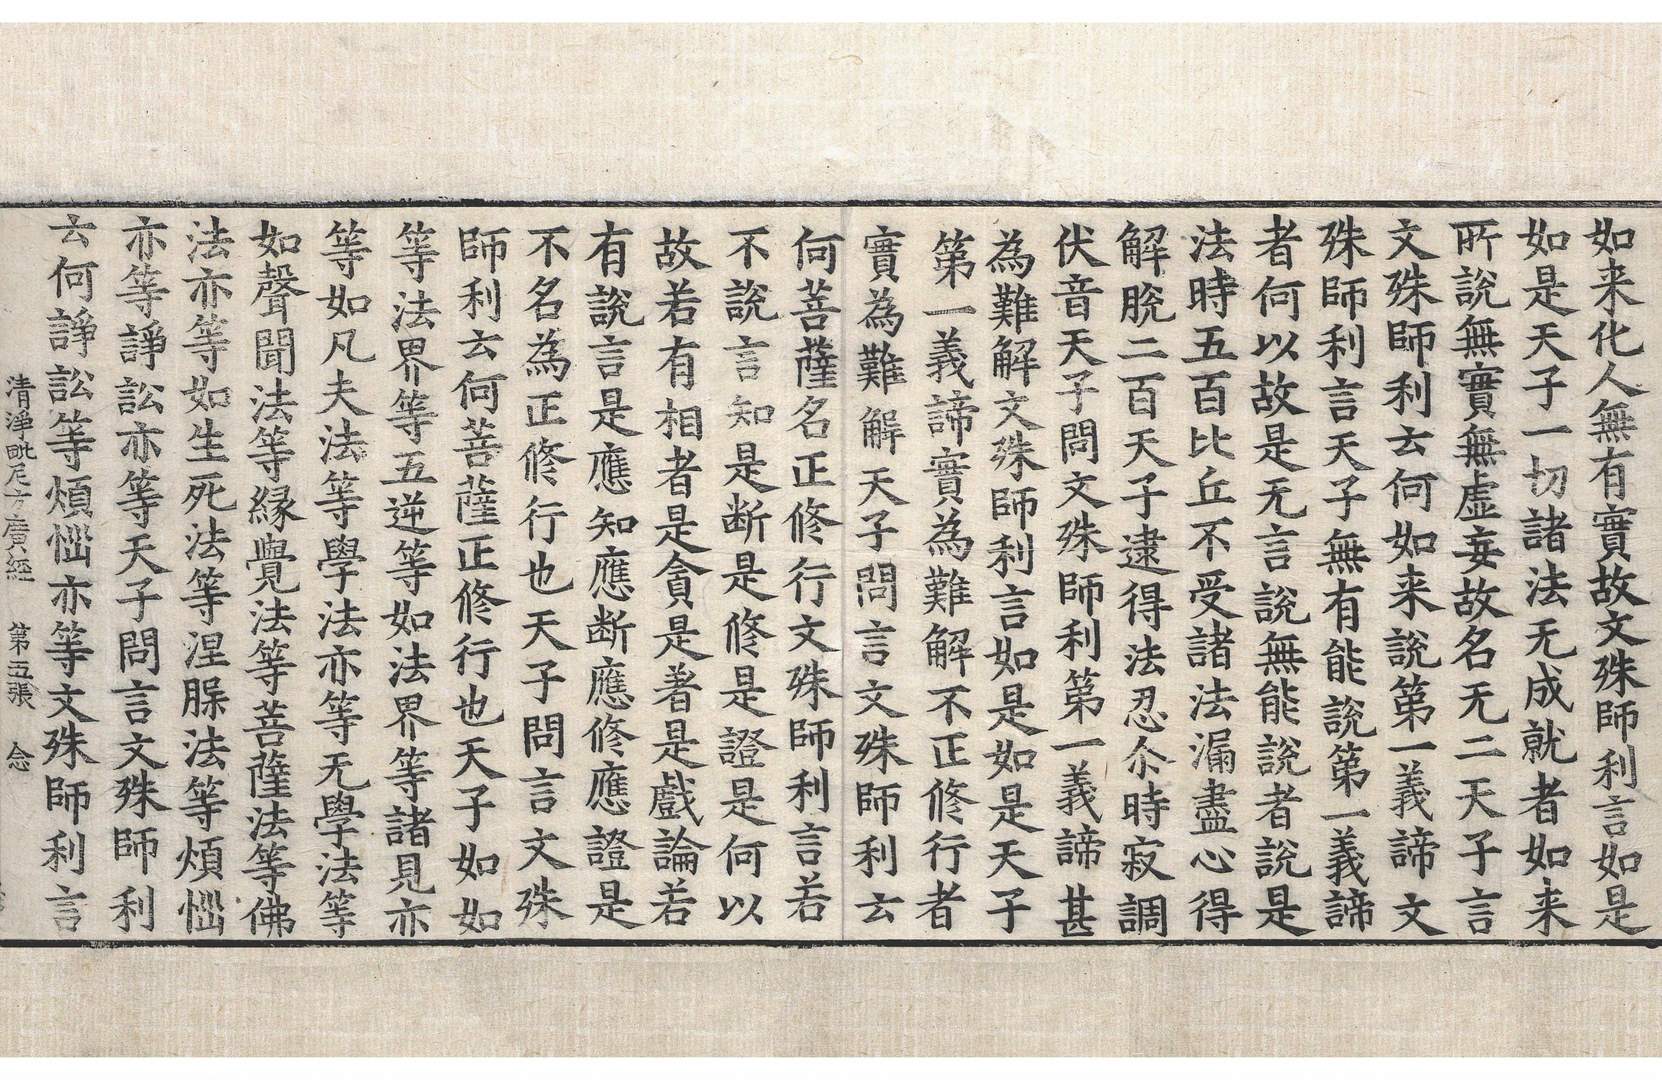 如来化人無有實故文殊師利言如是
如是天子一切諸法无成就者如来
所說無實無虛妄故名无二天子言
文殊師利云何如来說第一義諦文
殊師利言天子無有能說第一義諦
者何以故是无言說無能說者說是
法時五百比丘不受諸法漏盡心得
解脫二百天子逮得法忍尒時寂調
伏音天子問文殊師利第一義諦甚
為難解文殊師利言如是如是天子
第一義諦實為難解不正修行者
實為難解天子問言文殊師利云
何菩薩名正修行文殊師利言若
不說言知是断是修是證是何以
故若有相者是貪是著是戲論若
有說言是應知應断應修應證是
不名為正修行也天子問言文殊
師利云何菩薩正修行也天子如如
等法界等五逆等如法界等諸見亦
等如凡夫法等學法亦等无學法等
如聲聞法等縁覺法等菩薩法等佛
法亦等如生死法等涅槃法等煩惱
亦等諍訟亦等天子問言文殊師利
云何諍訟等煩惱亦等文殊師利言
清淨毗尼方廣經 第五張 念